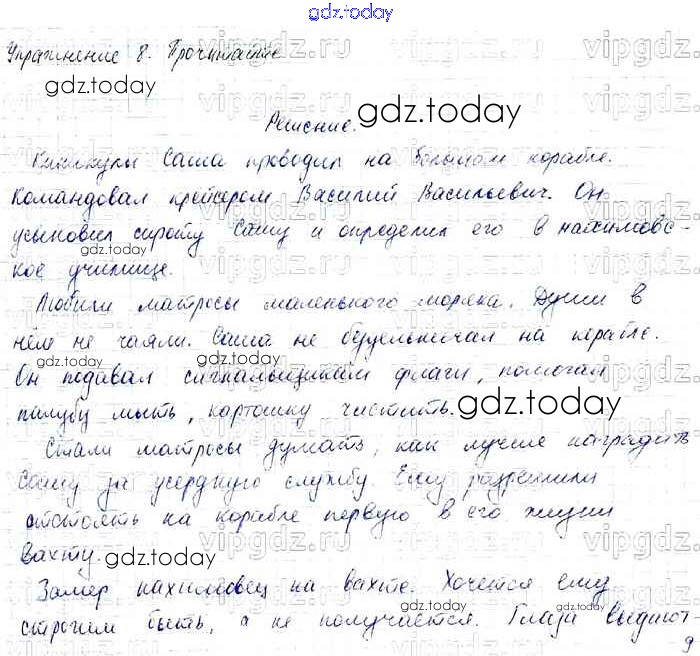 gdz.today
Упражнение 8. Прочитайте
gdz.today
gdz.today
Решение.
Каникулы Саша проводил на большом корабле.
Командовал крейсером Василий Васильевич. Он
усыновил сироту Сашу и определил его в нахимовс-
gdz.today
кое училище.
Любили матросы маленького моряка. Души в
нём не чаяли. Саша не бездельничал на корабле.
gdz.today
gdz.today
Он подавал сигнальщикам флаги, помогал
палубу мыть, картошку чистить.
gdz.today
Стали матросы думать, как лучше наградить
Сашу за усердную службу. Ему разрешили
отстоять на корабле первую в его жизни
вахту.
gdz.today
Замер нахимовец на вахте. Хочется ему
gdz.today
gdz.today
строгим быть, а не получается. Глаза выдают
9